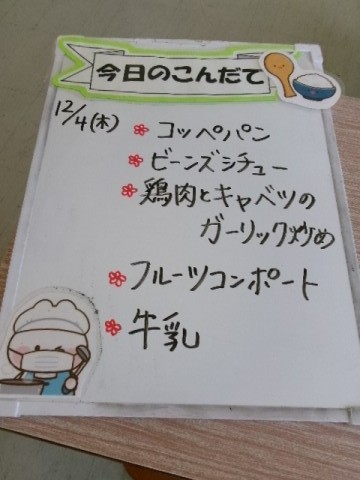 今日のこんだて
12/4(木)
コッペパン
ビーンズシチュー
鶏肉とキャベツの
ガーリック炒め
フルーツコンポート
牛乳